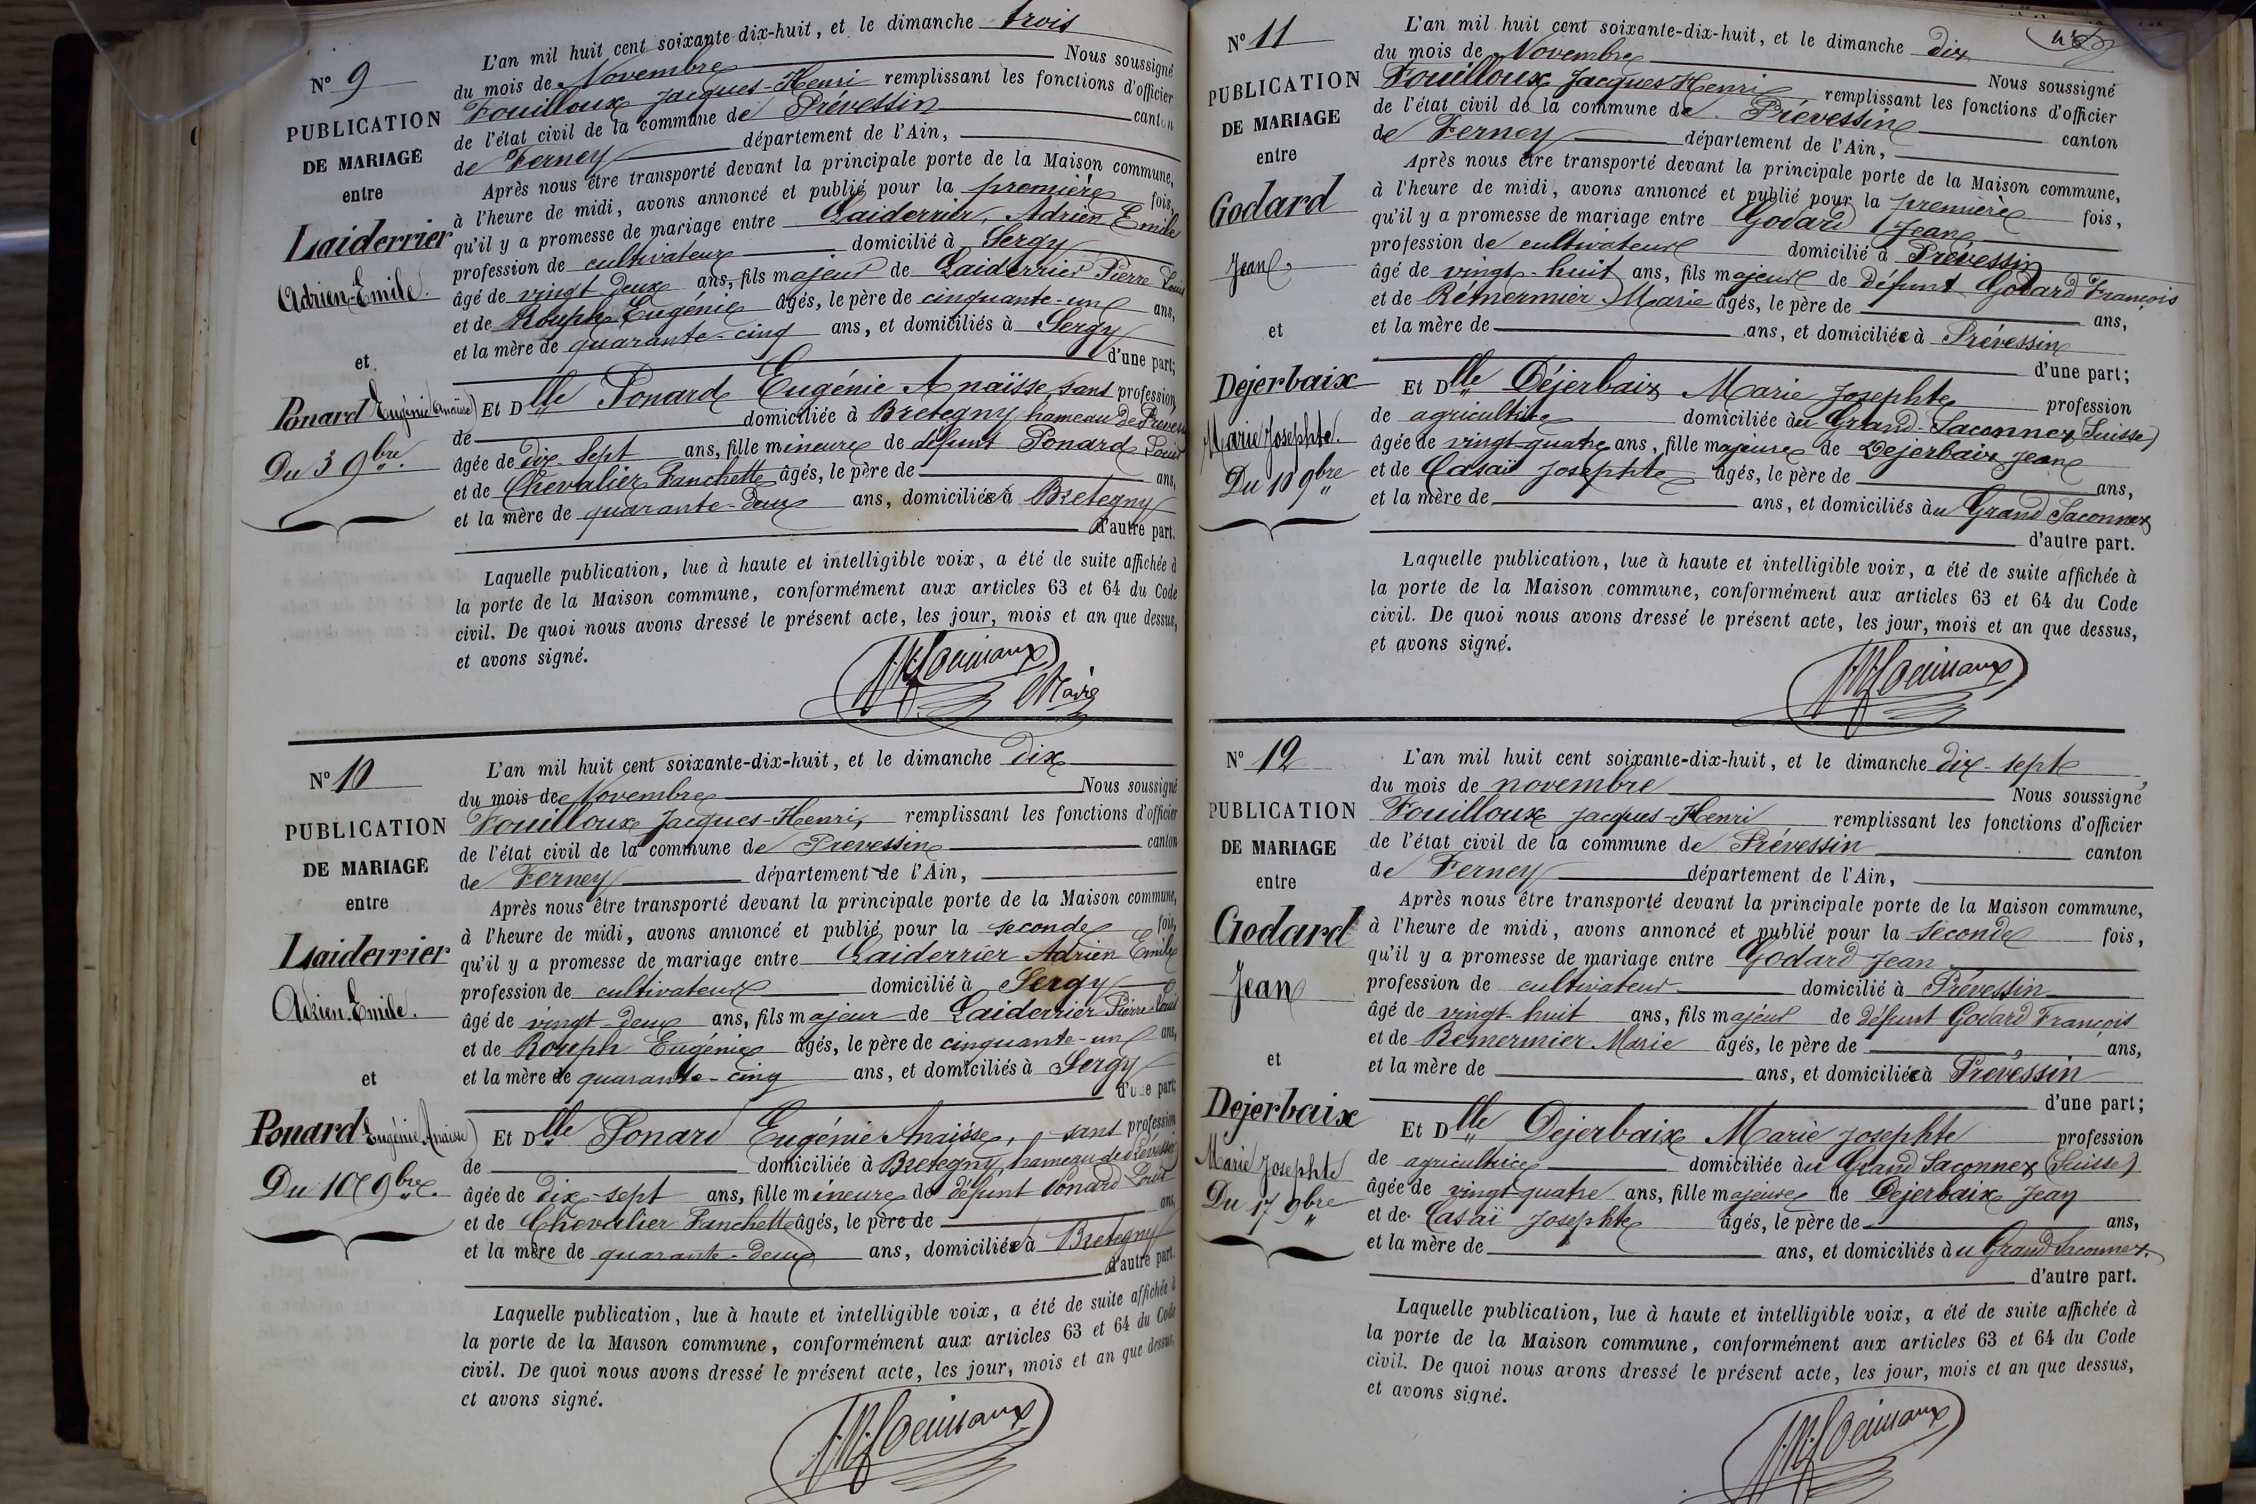 N° 9
PUBLICATION
DE MARIAGE
entre
Laiderrier
Adrien-Emile.
et
Ponard Eugénie Anaïsse)
Du 3 9bre.
L'an mil huit cent soixante-dix-huit, et le dimanche trois
du mois de Novembre Nous soussigné
Fouilloux Jacques-Henri remplissant les fonctions d'officier
de l'état civil de la commune de Prévessin canton
de Ferney département de l'Ain,
Après nous être transporté devant la principale porte de la Maison commune,
à l'heure de midi, avons annoncé et publié pour la première fois,
qu'il y a promesse de mariage entre Laiderrier, Adrien Emile
profession de cultivateur domicilié à Sergy
âgé de vingt-deux ans, fils majeur de Laiderrier Pierre Louis
et de Rouph Eugénie âgés, le père de cinquante-un ans,
et la mère de quarante-cinq ans, et domiciliés à Sergy
d'une part;
Et Dlle Ponard Eugénie Anaïsse sans profession
de domiciliée à Bretegny hameau de Prévessin
âgée de dix-sept ans, fille mineure de défunt Ponard Louis
et de Chevalier Fanchette âgés, le père de ans,
et la mère de quarante-deux ans, domiciliée à Bretegny
d'autre part.
Laquelle publication, lue à haute et intelligible voix, a été de suite affichée à
la porte de la Maison commune, conformément aux articles 63 et 64 du Code
civil. De quoi nous avons dressé le présent acte, les jour, mois et an que dessus,
et avons signé.
Maire
N° 10
PUBLICATION
DE MARIAGE
entre
Laiderrier
Adrien-Emile.
et
Ponard Eugénie Anaïsse)
Du 10 9bre.
L'an mil huit cent soixante-dix-huit, et le dimanche dix
du mois de Novembre Nous soussigné
Fouilloux Jacques-Henri, remplissant les fonctions d'officier
de l'état civil de la commune de Prevessin canton
de Ferney département de l'Ain,
Après nous être transporté devant la principale porte de la Maison commune,
à l'heure de midi, avons annoncé et publié pour la seconde fois,
qu'il y a promesse de mariage entre Laiderrier Adrien Emile
profession de cultivateur domicilié à Sergy
âgé de vingt-deux ans, fils majeur de Laiderrier Pierre-Louis
et de Rouph Eugénie âgés, le père de cinquante-un ans,
et la mère de quarante-cinq ans, et domiciliés à Sergy
d'une part;
Et Dlle Ponard Eugénie Anaïsse, sans profession
de domiciliée à Bretegny, hameau de Prévessin
âgée de dix-sept ans, fille mineure de défunt Ponard Louis
et de Chevalier Fanchette âgés, le père de ans,
et la mère de quarante-deux ans, domiciliée à Bretegny
d'autre part.
Laquelle publication, lue à haute et intelligible voix, a été de suite affichée à
la porte de la Maison commune, conformément aux articles 63 et 64 du Code
civil. De quoi nous avons dressé le présent acte, les jour, mois et an que dessus,
et avons signé.
N° 11
PUBLICATION
DE MARIAGE
entre
Godard
Jean,
et
Dejerbaix
Marie Josephte.
Du 10 9bre
L'an mil huit cent soixante-dix-huit, et le dimanche dix
du mois de Novembre Nous soussigné
Fouilloux Jacques Henri remplissant les fonctions d'officier
de l'état civil de la commune de Prévessin canton
de Ferney département de l'Ain,
Après nous être transporté devant la principale porte de la Maison commune,
à l'heure de midi, avons annoncé et publié pour la première fois,
qu'il y a promesse de mariage entre Godard Jean
profession de cultivateur domicilié à Prévessin
âgé de vingt-huit ans, fils majeur de défunt Godard François
et de Remermier Marie âgés, le père de ans,
et la mère de ans, et domiciliée à Prévessin
d'une part;
Et Dlle Déjerbaix Marie Josephte profession
de agricultrice domiciliée au Grand-Saconnex (Suisse)
âgée de vingt-quatre ans, fille majeure de Dejerbaix Jean
et de Casaï Josephte âgés, le père de ans,
et la mère de ans, et domiciliés au Grand Saconnex
d'autre part.
Laquelle publication, lue à haute et intelligible voix, a été de suite affichée à
la porte de la Maison commune, conformément aux articles 63 et 64 du Code
civil. De quoi nous avons dressé le présent acte, les jour, mois et an que dessus,
et avons signé.
N° 12
PUBLICATION
DE MARIAGE
entre
Godard
Jean
et
Dejerbaix
Marie Josephte
Du 17 9bre
L'an mil huit cent soixante-dix-huit, et le dimanche dix-sept
du mois de novembre Nous soussigné
Fouilloux Jacques-Henri remplissant les fonctions d'officier
de l'état civil de la commune de Prévessin canton
de Ferney département de l'Ain,
Après nous être transporté devant la principale porte de la Maison commune,
à l'heure de midi, avons annoncé et publié pour la seconde fois,
qu'il y a promesse de mariage entre Godard Jean
profession de cultivateur domicilié à Prévessin
âgé de vingt-huit ans, fils majeur de défunt Godard François
et de Remermier Marie âgés, le père de ans,
et la mère de ans, et domiciliée à Prévessin
d'une part;
Et Dlle Dejerbaix Marie Josephte profession
de agricultrice domiciliée au Grand Saconnex (Suisse)
âgée de vingt-quatre ans, fille majeure de Dejerbaix Jean
et de Casaï Josephte âgés, le père de ans,
et la mère de ans, et domiciliés au Grand Saconnex.
d'autre part.
Laquelle publication, lue à haute et intelligible voix, a été de suite affichée à
la porte de la Maison commune, conformément aux articles 63 et 64 du Code
civil. De quoi nous avons dressé le présent acte, les jour, mois et an que dessus,
et avons signé.